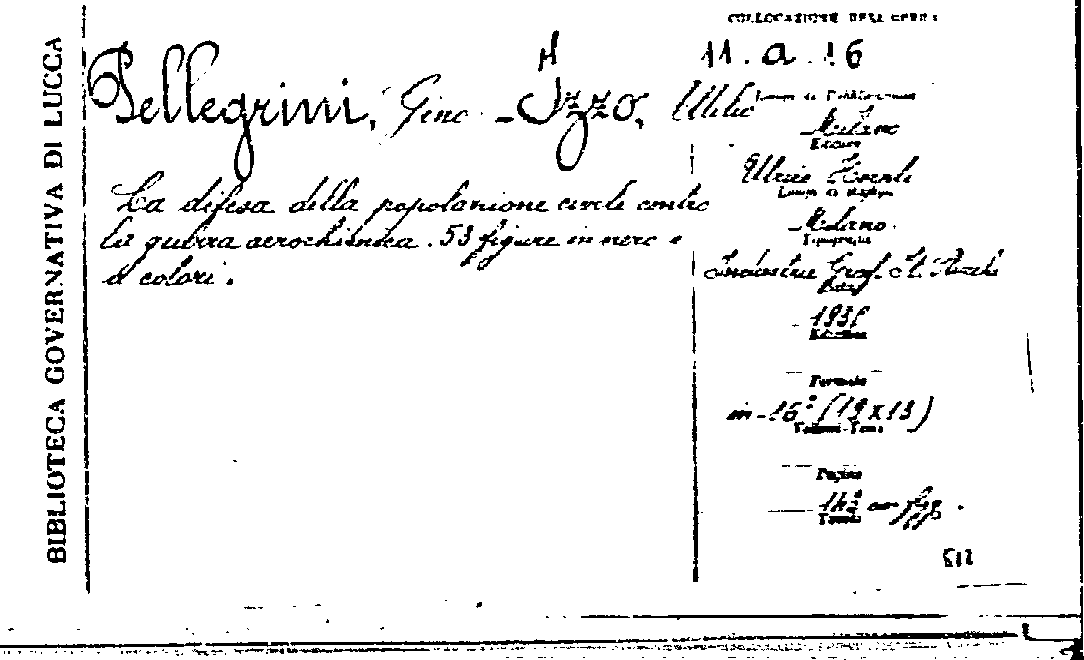 BIBLIOTECA GOVERNATIVA DI LUCCA
COLLOCAZIONE DELL'OPERA
11. a. 16
Pellegrini, Gino - Izzo, Attilio
La difesa della popolazione civile contro
la guerra aerochimica. 53 figure in nero e
a colori.
Luogo di Pubblicazione
Milano
Editore
Ulrico Hoepli
Milano
Tipografia
Industrie Graf. It.
Edizione
Formato
in-16° (19 x 13)
Volumi-Tomi
Pagine
con figg.
Tavole